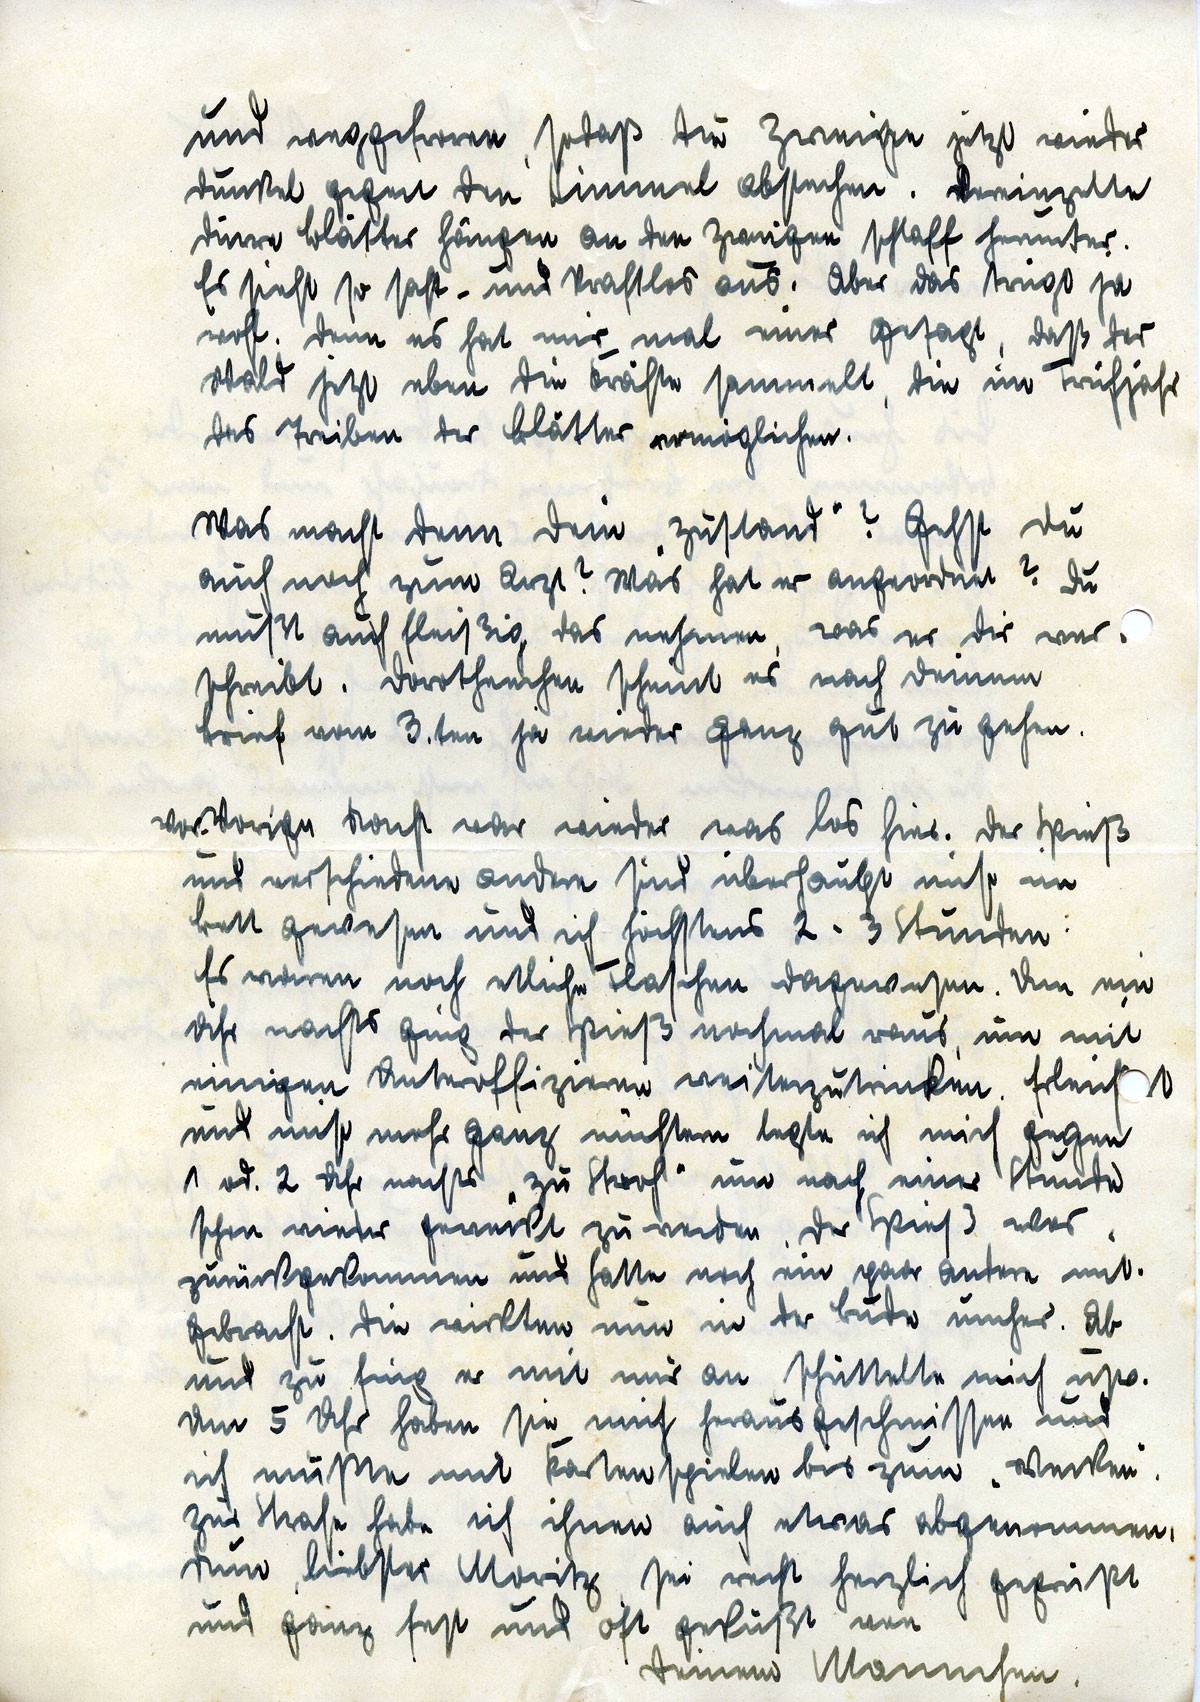 und weggefroren, sodaß die Zweige jetzt wieder
dunkel gegen den Himmel abstechen. Vereinzelte
dürre Blätter hängen an den Zweigen schlaff herunter.
Es sieht so saft- und kraftlos aus. Aber das trügt ja
wohl. Denn es hat mir mal einer gesagt, daß der
Wald jetzt eben die Kräfte sammelt, die im Frühjahr
das Treiben der Blätter ermöglichen.
Was macht denn Dein „Zustand"? Gehst Du
auch noch zum Arzt? Was hat er angeordnet? Du
mußt auch fleißig das nehmen, was er Dir ver-
schreibt. Dorotheechen scheint es nach Deinem
Brief vom 3.ten ja wieder ganz gut zu gehen.
vor-Vorige Nacht war wieder was los hier. Der Spieß
und verschiedene andere sind überhaupt nicht im
Bett gewesen und ich höchstens 2-3 Stunden.
Es waren noch etliche Flaschen dagewesen. Um ein
Uhr nachts ging der Spieß nochmal raus, um mit
einigen Unteroffizieren weiterzutrinken. Erleichtert
und nicht mehr ganz nüchtern legte ich mich gegen
1 od. 2 Uhr nachts „zu Stroh" um nach einer Stunde
schon wieder geweckt zu werden. Der Spieß war
zurückgekommen und hatte noch ein paar andere mit-
gebracht. Die wirkten nun in der Bude umher. Ab
und zu fing er mit mir an schüttelte mich usw.
Um 5 Uhr haben sie mich herausgeschmissen und
ich mußte mit Karten spielen bis zum „Wecken".
Zur Strafe habe ich ihnen auch etwas abgenommen.
Nun, liebster Moritz, sei recht herzlich gegrüßt
und ganz fest und oft geküßt von
Deinem Mannchen.